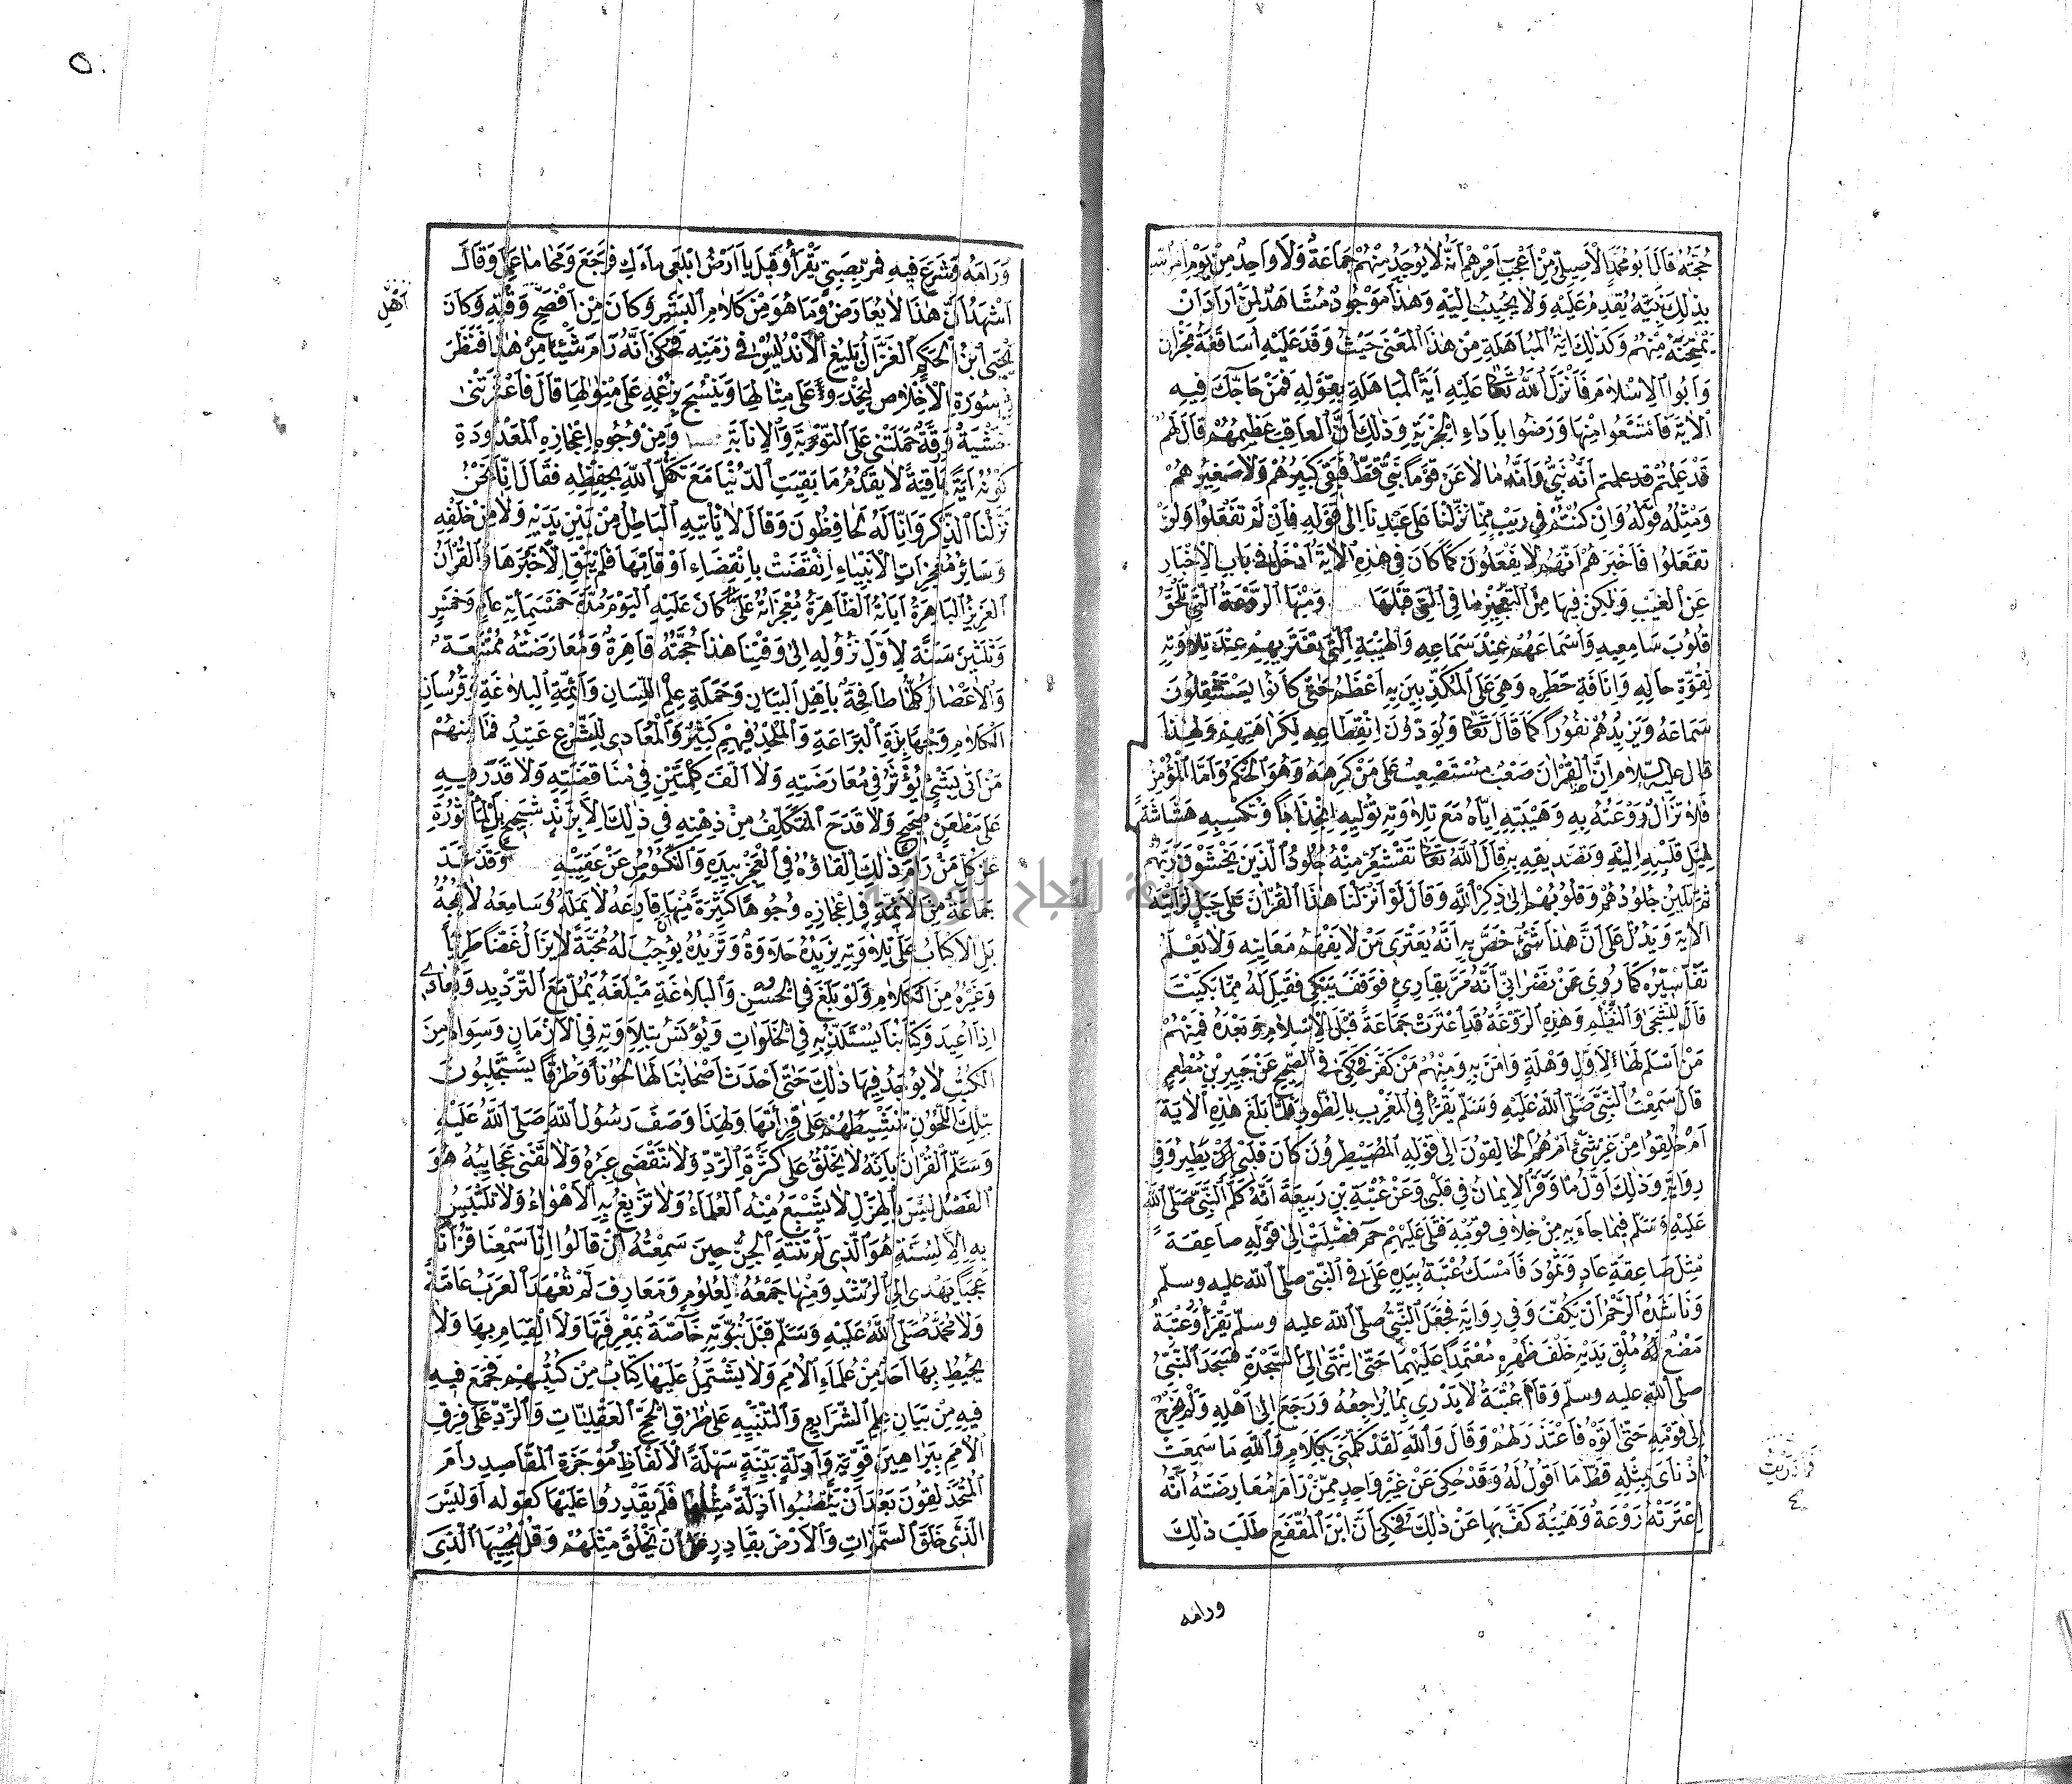 حُجَّتُهُ قَالَ أَبُو مُحَمَّدٍ الْأَصِيلِيُّ مِنْ أَعْجَبِ أَمْرِهِمْ أَنَّهُ لَا يُوجَدُ مِنْهُمْ جَمَاعَةٌ وَلَا وَاحِدٌ مِنْ يَوْمِ أَمَرَ اللهُ
بِذَلِكَ نَبِيَّهُ يُقْدِمُ عَلَيْهِ وَلَا يُجِيبُ إِلَيْهِ وَهَذَا مَوْجُودٌ مُشَاهَدٌ لِمَنْ أَرَادَ أَنْ
يَمْتَحِنَهُ مِنْهُمْ وَكَذَلِكَ آيَةُ الْمُبَاهَلَةِ مِنْ هَذَا الْمَعْنَى حَيْثُ وَفَدَ عَلَيْهِ أَسَاقِفَةُ نَجْرَانَ
وَأَبَوُا الْإِسْلَامَ فَأَنْزَلَ اللهُ تَعَالَى عَلَيْهِ آيَةَ الْمُبَاهَلَةِ بِقَوْلِهِ فَمَنْ حَاجَّكَ فِيهِ
الْآيَةَ فَامْتَنَعُوا مِنْهَا وَرَضُوا بِأَدَاءِ الْجِزْيَةِ وَذَلِكَ أَنَّ الْعَاقِبَ عَظِيمَهُمْ قَالَ لَهُمْ
قَدْ عَلِمْتُمْ أَنَّهُ نَبِيٌّ وَأَنَّهُ مَا لَاعَنَ قَوْمًا نَبِيٌّ قَطُّ فَبَقِيَ كَبِيرُهُمْ وَلَا صَغِيرُهُمْ
وَمِثْلُهُ قَوْلُهُ وَإِنْ كُنْتُمْ فِي رَيْبٍ مِمَّا نَزَّلْنَا عَلَى عَبْدِنَا إِلَى قَوْلِهِ فَإِنْ لَمْ تَفْعَلُوا وَلَنْ
تَفْعَلُوا فَأَخْبَرَهُمْ أَنَّهُمْ لَا يَفْعَلُونَ كَمَا كَانَ فِي هَذِهِ الْآيَةِ أَدْخَلُ فِي بَابِ الْإِخْبَارِ
عَنِ الْغَيْبِ وَلَكِنْ فِيهَا مِنَ التَّعْجِيزِ مَا فِي الَّتِي قَبْلَهَا وَمِنْهَا الرَّوْعَةُ الَّتِي تَلْحَقُ
قُلُوبَ سَامِعِيهِ وَأَسْمَاعَهُمْ عِنْدَ سَمَاعِهِ وَالْهَيْبَةِ الَّتِي تَعْتَرِيهِمْ عِنْدَ تِلَاوَتِهِ
لِقُوَّةِ حَالِهِ وَإِنَافَةِ خَطَرِهِ وَهِيَ عَلَى الْمُكَذِّبِينَ بِهِ أَعْظَمُ حَتَّى كَانُوا يَسْتَثْقِلُونَ
سَمَاعَهُ وَيَزِيدُهُمْ نُفُورًا كَمَا قَالَ تَعَالَى وَيَوَدُّونَ انْقِطَاعَهُ لِكَرَاهَتِهِمْ وَلِهَذَا
قَالَ عليه السلام إِنَّ الْقُرْآنَ صَعْبٌ مُسْتَصْعِبٌ عَلَى مَنْ كَرِهَهُ وَهُوَ الْحَكَمُ وَأَمَّا الْمُؤْمِنُ
فَلَا تَزَالُ رَوْعَتُهُ بِهِ وَهَيْبَتِهِ إِيَّاهُ مَعَ تِلَاوَتِهِ تُولِيهِ انْجِذَابًا وَتُكْسِبُهُ هَشَاشَةً
لِمَيْلِ قَلْبِهِ إِلَيْهِ وَتَصْدِيقِهِ بِهِ قَالَ اللهُ تَعَالَى تَقْشَعِرُّ مِنْهُ جُلُودُ الَّذِينَ يَخْشَوْنَ رَبَّهُمْ
ثُمَّ تَلِينُ جُلُودُهُمْ وَقُلُوبُهُمْ إِلَى ذِكْرِ اللهِ وَقَالَ لَوْ أَنْزَلْنَا هَذَا الْقُرْآنَ عَلَى جَبَلٍ لَرَأَيْتَهُ
الْآيَةَ وَيَدُلُّ عَلَى أَنَّ هَذَا شَيْءٌ خُصَّ بِهِ أَنَّهُ يَعْتَرِي مَنْ لَا يَفْهَمُ مَعَانِيَهُ وَلَا يَعْلَمُ
تَفَاسِيرَهُ كَمَا رُوِيَ عَنْ نَصْرَانِيٍّ أَنَّهُ مَرَّ بِقَارِئٍ فَوَقَفَ يَبْكِي فَقِيلَ لَهُ مِمَّا بَكَيْتَ
قَالَ لِلشَّجَى وَالنَّظْمِ وَهَذِهِ الرَّوْعَةُ قَدِ اعْتَرَتْ جَمَاعَةً قَبْلَ الْإِسْلَامِ وَبَعْدَهُ فَمِنْهُمْ
مَنْ أَسْلَمَ لَهَا لِأَوَّلِ وَهْلَةٍ وَآمَنَ بِهِ وَمِنْهُمْ مَنْ كَفَرَ فَحُكِيَ فِي الصَّحِيحِ عَنْ جُبَيْرِ بْنِ مُطْعِمٍ
قَالَ سَمِعْتُ النَّبِيَّ صَلَّى اللهُ عَلَيْهِ وَسَلَّمَ يَقْرَأُ فِي الْمَغْرِبِ بِالطُّورِ فَلَمَّا بَلَغَ هَذِهِ الْآيَةَ
أَمْ خُلِقُوا مِنْ غَيْرِ شَيْءٍ أَمْ هُمُ الْخَالِقُونَ إِلَى قَوْلِهِ الْمُصَيْطِرُونَ كَادَ قَلْبِي أَنْ يَطِيرَ وَفِي
رِوَايَةٍ وَذَلِكَ أَوَّلُ مَا وَقَرَ الْإِيمَانُ فِي قَلْبِي وَعَنْ عُتْبَةَ بْنِ رَبِيعَةَ أَنَّهُ كَلَّمَ النَّبِيَّ صَلَّى اللهُ
عَلَيْهِ وَسَلَّمَ فِيمَا جَاءَ بِهِ مِنْ خِلَافِ قَوْمِهِ فَتَلَى عَلَيْهِمْ حم فُصِّلَتْ إِلَى قَوْلِهِ صَاعِقَةً
مِثْلَ صَاعِقَةِ عَادٍ وَثَمُودَ فَأَمْسَكَ عُتْبَةُ بِيَدِهِ عَلَى فِي النَّبِيِّ صلّى الله عليه وسلم
وَنَاشَدَهُ الرَّحِمَ أَنْ يَكُفَّ وَفِي رِوَايَةٍ فَجَعَلَ النَّبِيُّ صلّى الله عليه وسلّم يَقْرَأُ وَعُتْبَةُ
مُصْغٍ لَهُ مُلْقٍ يَدَيْهِ خَلْفَ ظَهْرِهِ مُعْتَمِدًا عَلَيْهِمَا حَتَّى انْتَهَى إِلَى السَّجْدَةِ فَسَجَدَ النَّبِيُّ
صلّى الله عليه وسلّم وَقَامَ عُتْبَةُ لَا يَدْرِي بِمَا يُرَاجِعُهُ وَرَجَعَ إِلَى أَهْلِهِ وَلَمْ يَخْرُجْ
إِلَى قَوْمِهِ حَتَّى أَتَوْهُ فَاعْتَذَرَ لَهُمْ وَقَالَ وَاللهِ لَقَدْ كَلَّمَنِي بِكَلَامٍ وَاللهِ مَا سَمِعَتْ
أُذْنَايَ بِمِثْلِهِ قَطُّ مَا أَقُولُ لَهُ وَقَدْ حُكِيَ عَنْ غَيْرِ وَاحِدٍ مِمَّنْ رَامَ مُعَارَضَتَهُ أَنَّهُ
اعْتَرَتْهُ رَوْعَةٌ وَهَيْبَةٌ كَفَّ بِهَا عَنْ ذَلِكَ فَحُكِيَ أَنَّ ابْنَ الْمُقَفَّعِ طَلَبَ ذَلِكَ
ورامه
وَرَامَهُ وَشَرَعَ فِيهِ فَمَرَّ بِصَبِيٍّ يَقْرَأُ وَقِيلَ يَا أَرْضُ ابْلَعِي مَاءَكِ فَرَجَعَ وَمَحَا مَا عَمِلَ وَقَالَ
أَشْهَدُ أَنَّ هَذَا لَا يُعَارَضُ وَمَا هُوَ مِنْ كَلَامِ الْبَشَرِ وَكَانَ مِنْ أَفْصَحِ وَقْتِهِ وَكَانَ
أهل
يَحْيَى ابْنُ الْحَكَمِ الْغَزَّالُ بَلِيغَ الْأَنْدَلُسِ فِي زَمَنِهِ فَحُكِيَ أَنَّهُ رَامَ شَيْئًا مِنْ هَذَا فَنَظَرَ
فِي سُورَةِ الْإِخْلَاصِ لِيَحْذُوَ عَلَى مِثَالِهَا وَيَنْسُجَ بِزَعْمِهِ عَلَى مِنْوَالِهَا قَالَ فَاعْتَرَتْنِي
خَشْيَةٌ وَرِقَّةٌ حَمَلَتْنِي عَلَى التَّوْبَةِ وَالْإِنَابَةِ وَمِنْ وُجُوهِ إِعْجَازِهِ الْمَعْدُودَةِ
كَوْنُهُ آيَةً بَاقِيَةً لَا يُعْدَمُ مَا بَقِيَتِ الدُّنْيَا مَعَ تَكَفُّلِ اللهِ بِحِفْظِهِ فَقَالَ إِنَّا نَحْنُ
نَزَّلْنَا الذِّكْرَ وَإِنَّا لَهُ لَحَافِظُونَ وَقَالَ لَا يَأْتِيهِ الْبَاطِلُ مِنْ بَيْنِ يَدَيْهِ وَلَا مِنْ خَلْفِهِ
وَسَائِرُ مُعْجِزَاتِ الْأَنْبِيَاءِ انْقَضَتْ بِانْقِضَاءِ أَوْقَاتِهَا فَلَمْ يَبْقَ إِلَّا خَبَرُهَا وَالْقُرْآنُ
الْعَزِيزُ الْبَاهِرَةُ آيَاتُهُ الظَّاهِرَةُ مُعْجِزَاتُهُ عَلَى مَا كَانَ عَلَيْهِ الْيَوْمَ مُدَّةَ خَمْسِمِائَةِ عَامٍ وَخَمْسٍ
وَثَلَثِينَ سَنَةً لِأَوَّلِ نُزُولِهِ إِلَى وَقْتِنَا هَذَا حُجَّتُهُ قَاهِرَةٌ وَمُعَارَضَتُهُ مُمْتَنِعَةٌ
وَالْأَعْصَارُ كُلُّهَا طَافِحَةٌ بِأَهْلِ الْبَيَانِ وَحَمَلَةِ عِلْمِ اللِّسَانِ وَأَئِمَّةِ الْبَلَاغَةِ وَفُرْسَانِ
الْكَلَامِ وَجَهَابِذَةِ الْبَرَاعَةِ وَالْمُلْحِدُ فِيهِمْ كَثِيرٌ وَالْمُعَادِي لِلشَّرْعِ عَتِيدٌ فَمَا مِنْهُمْ
مَنْ أَتَى بِشَيْءٍ يُؤْثَرُ فِي مُعَارَضَتِهِ وَلَا أَلَّفَ كَلِمَتَيْنِ فِي مُنَاقَضَتِهِ وَلَا قَدَرَ فِيهِ
عَلَى مَطْعَنٍ صَحِيحٍ وَلَا قَدَحَ الْمُتَكَلِّفُ مِنْ ذِهْنِهِ فِي ذَلِكَ إِلَّا بِزَنْدٍ شَحِيحٍ بَلِ الْمَأْثُورَةُ
عَنْ كُلِّ مَنْ رَامَ ذَلِكَ إِلْقَاؤُهُ فِي الْعَجْزِ بِيَدِهِ وَالنُّكُوصُ عَنْ عَقِبَيْهِ وَقَدْ عَدَّ
جَمَاعَةٌ مِنَ الْأَئِمَّةِ فِي إِعْجَازِهِ وُجُوهًا كَثِيرَةً مِنْهَا أن قَارِئَهُ لَا يَمَلُّهُ وَسَامِعَهُ لَا يَمُجُّهُ
بَلِ الْإِكْبَابُ عَلَى تِلَاوَتِهِ يَزِيدُهُ حَلَاوَةً وَتَرْدِيدُهُ يُوجِبُ لَهُ مُحَبَّةً لَا يَزَالُ غَضًّا طَرِيًّا
وَغَيْرُهُ مِنَ الْكَلَامِ وَلَوْ بَلَغَ فِي الْحُسْنِ وَالْبَلَاغَةِ مَبْلَغَهُ يُمَلُّ مَعَ التَّرْدِيدِ وَيُعَادَى
إِذَا أُعِيدَ وَكِتَابُنَا يُسْتَلَذُّ بِهِ فِي الْخَلَوَاتِ وَيُؤْنَسُ بِتِلَاوَتِهِ فِي الْأَزْمَانِ وَسِوَاهُ مِنَ
الْكُتُبِ لَا يُوجَدُ فِيهَا ذَلِكَ حَتَّى أَحْدَثَ أَصْحَابُنَا لَهَا لُحُونًا وَطُرُقًا يَسْتَجْلِبُونَ
بِتِلْكَ اللُّحُونِ تَنْشِيطَهُمْ عَلَى قِرَاءَتِهَا وَلِهَذَا وَصَفَ رَسُولُ اللهِ صَلَّى اللهُ عَلَيْهِ
وَسَلَّمَ الْقُرْآنَ بِأَنَّهُ لَا يَخْلَقُ عَلَى كَثْرَةِ الرَّدِّ وَلَا تَنْقَضِي عِبَرُهُ وَلَا تَفْنَى عَجَائِبُهُ هُوَ
الْفَصْلُ لَيْسَ بِالْهَزْلِ لَا يَشْبَعُ مِنْهُ الْعُلَمَاءُ وَلَا تَزِيغُ بِهِ الْأَهْوَاءُ وَلَا تَلْتَبِسُ
بِهِ الْأَلْسِنَةُ هُوَ الَّذِي لَمْ تَنْتَهِ الْجِنُّ حِينَ سَمِعَتْهُ أَنْ قَالُوا إِنَّا سَمِعْنَا قُرْآنًا
عَجَبًا يَهْدِي إِلَى الرُّشْدِ وَمِنْهَا جَمْعُهُ لِعُلُومٍ وَمَعَارِفَ لَمْ تَعْهَدِ الْعَرَبُ عَامَّةً
وَلَا مُحَمَّدٌ صَلَّى اللهُ عَلَيْهِ وَسَلَّمَ قَبْلَ نُبُوَّتِهِ خَاصَّةً بِمَعْرِفَتِهَا وَلَا الْقِيَامِ بِهَا وَلَا
يُحِيطُ بِهَا أَحَدٌ مِنْ عُلَمَاءِ الْأُمَمِ وَلَا يَشْتَمِلُ عَلَيْهَا كِتَابٌ مِنْ كُتُبِهِمْ فَجُمِعَ فِيهِ
فِيهِ مِنْ بَيَانِ عِلْمِ الشَّرَايِعِ وَالتَّنْبِيهِ عَلَى طُرُقِ الْحُجَجِ الْعَقْلِيَّاتِ وَالرَّدِّ عَلَى فِرَقِ
الْأُمَمِ بِبَرَاهِينَ قَوِيَّةٍ وَأَدِلَّةٍ بَيِّنَةٍ سَهْلَةَ الْأَلْفَاظِ مُوجَزَةِ الْمَقَاصِدِ رَامَ
الْمُتَحَذْلِقُونَ بَعْدَ أَنْ يَنْصِبُوا أَدِلَّةً مِثْلَهَا فَلَمْ يَقْدِرُوا عَلَيْهَا كَقَوْلِهِ أَوَلَيْسَ
الَّذِي خَلَقَ السَّمَوَاتِ وَالْأَرْضَ بِقَادِرٍ عَلَى أَنْ يَخْلُقَ مِثْلَهُمْ وَقُلْ يُحْيِيهَا الَّذِي
جامعة النجاح الوطنية